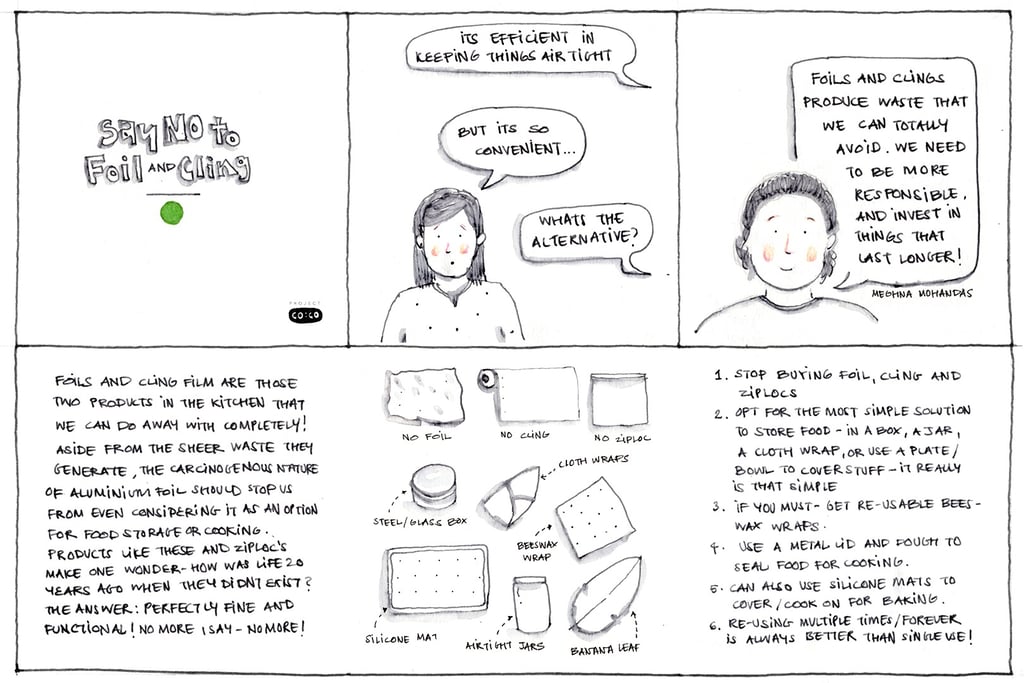 Say NO to
Foil AND Cling
PROJECT
CO:CO
ITS EFFICIENT IN
KEEPING THINGS AIR TIGHT
BUT ITS SO
CONVENIENT...
WHATS THE
ALTERNATIVE?
FOILS AND CLINGS
PRODUCE WASTE THAT
WE CAN TOTALLY
AVOID. WE NEED
TO BE MORE
RESPONSIBLE,
AND INVEST IN
THINGS THAT
LAST LONGER!
MEGHNA MOHANDAS
FOILS AND CLING FILM ARE THOSE
TWO PRODUCTS IN THE KITCHEN THAT
WE CAN DO AWAY WITH COMPLETELY!
ASIDE FROM THE SHEER WASTE THEY
GENERATE, THE CARCINOGENOUS NATURE
OF ALUMINIUM FOIL SHOULD STOP US
FROM EVEN CONSIDERING IT AS AN OPTION
FOR FOOD STORAGE OR COOKING.
PRODUCTS LIKE THESE AND ZIPLOC'S
MAKE ONE WONDER- HOW WAS LIFE 20
YEARS AGO WHEN THEY DIDN'T EXIST?
THE ANSWER: PERFECTLY FINE AND
FUNCTIONAL! NO MORE I SAY - NO MORE!
NO FOIL
NO CLING
NO ZIPLOC
STEEL/GLASS BOX
CLOTH WRAPS
BEESWAX
WRAP
SILICONE MAT
AIRTIGHT JARS
BANANA LEAF
1. STOP BUYING FOIL, CLING AND
ZIPLOCS
2. OPT FOR THE MOST SIMPLE SOLUTION
TO STORE FOOD - IN A BOX, A JAR,
A CLOTH WRAP, OR USE A PLATE/
BOWL TO COVER STUFF - IT REALLY
IS THAT SIMPLE
3. IF YOU MUST- GET RE-USABLE BEES-
WAX WRAPS.
4. USE A METAL LID AND FOUGH TO
SEAL FOOD FOR COOKING.
5. CAN ALSO USE SILICONE MATS TO
COVER/COOK ON FOR BAKING.
6. RE-USING MULTIPLE TIMES/FOREVER
IS ALWAYS BETTER THAN SINGLE USE!